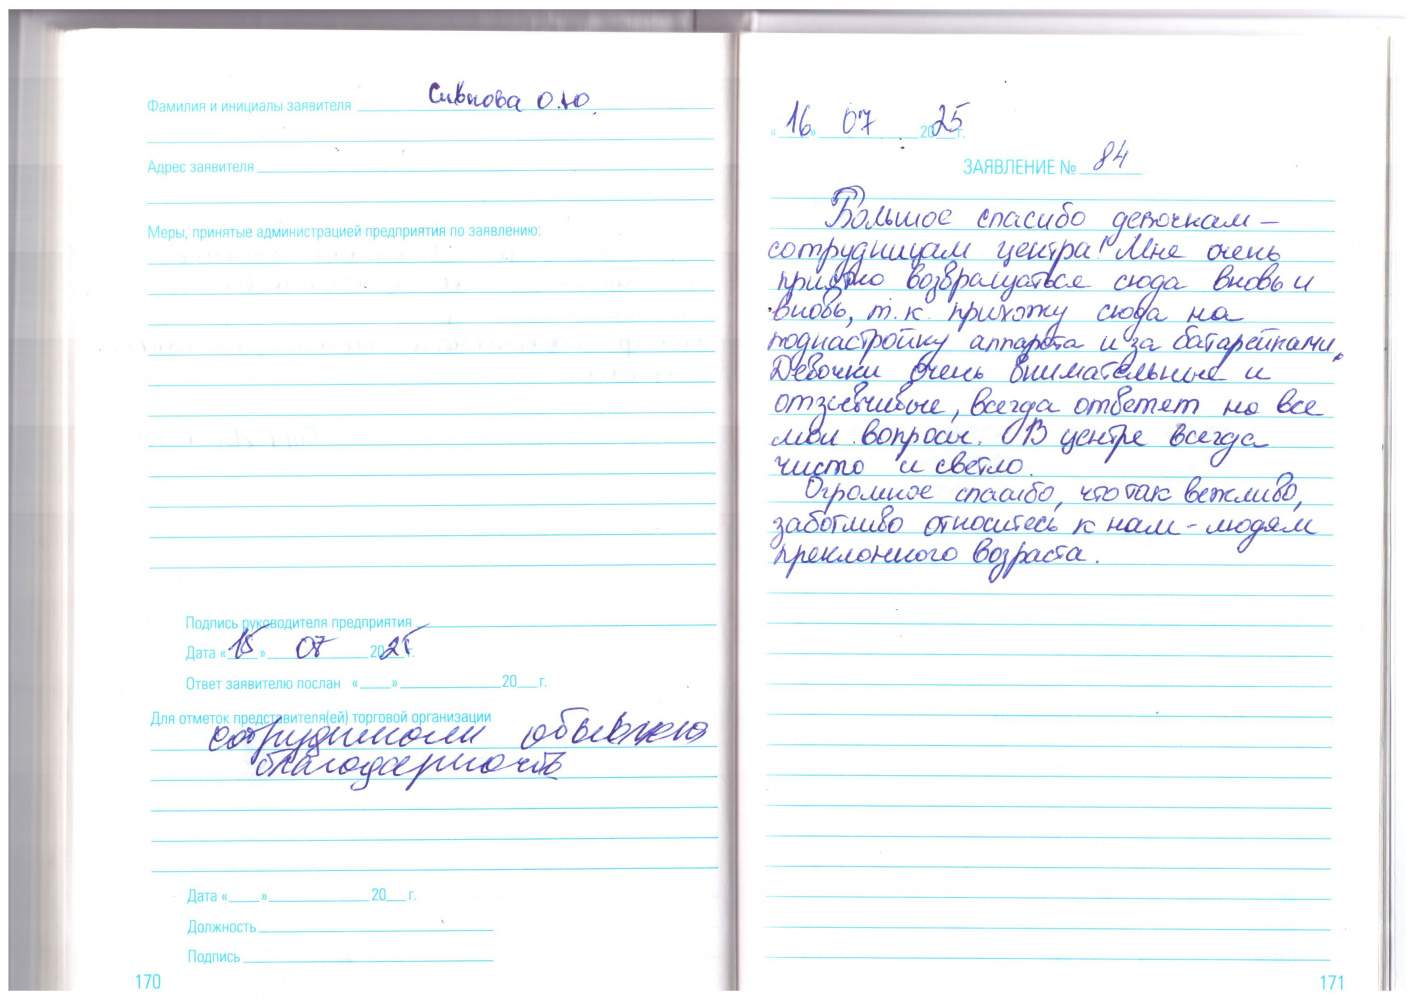 Фамилия и инициалы заявителя О.Ю.
Адрес заявителя
Меры, принятые администрацией предприятия по заявлению:
Подпись руководителя предприятия
Дата «15» 07 2025 г.
Ответ заявителю послан « » 20 г.
Для отметок представителя(ей) торговой организации
благодарность
Дата « » 20 г.
Должность
Подпись
170
«16» 07 2025 г.
ЗАЯВЛЕНИЕ № 84
Большое спасибо девочкам –
сотрудницам центра! Мне очень
приятно возвращаться сюда вновь и
вновь, т.к. прихожу сюда на
поднастройку аппарата и за батарейками.
Девочки очень внимательные и
отзывчивые, всегда ответят на все
мои вопросы. В центре всегда
чисто и светло.
Огромное спасибо, что так вежливо,
заботливо относитесь к нам – людям
преклонного возраста.
171